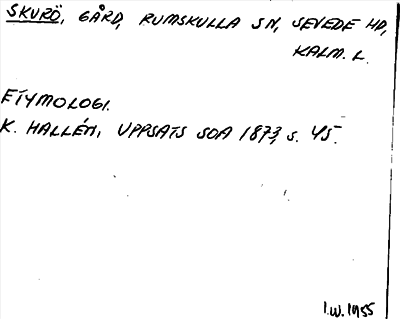 SKURÖ, GÅRD, RUMSKULLA SN, SEVEDE HD,
KALM. L.
ETYMOLOGI.
K. HALLÉN, UPPSATS SOA 1873, s. 45.
I.W. 1955